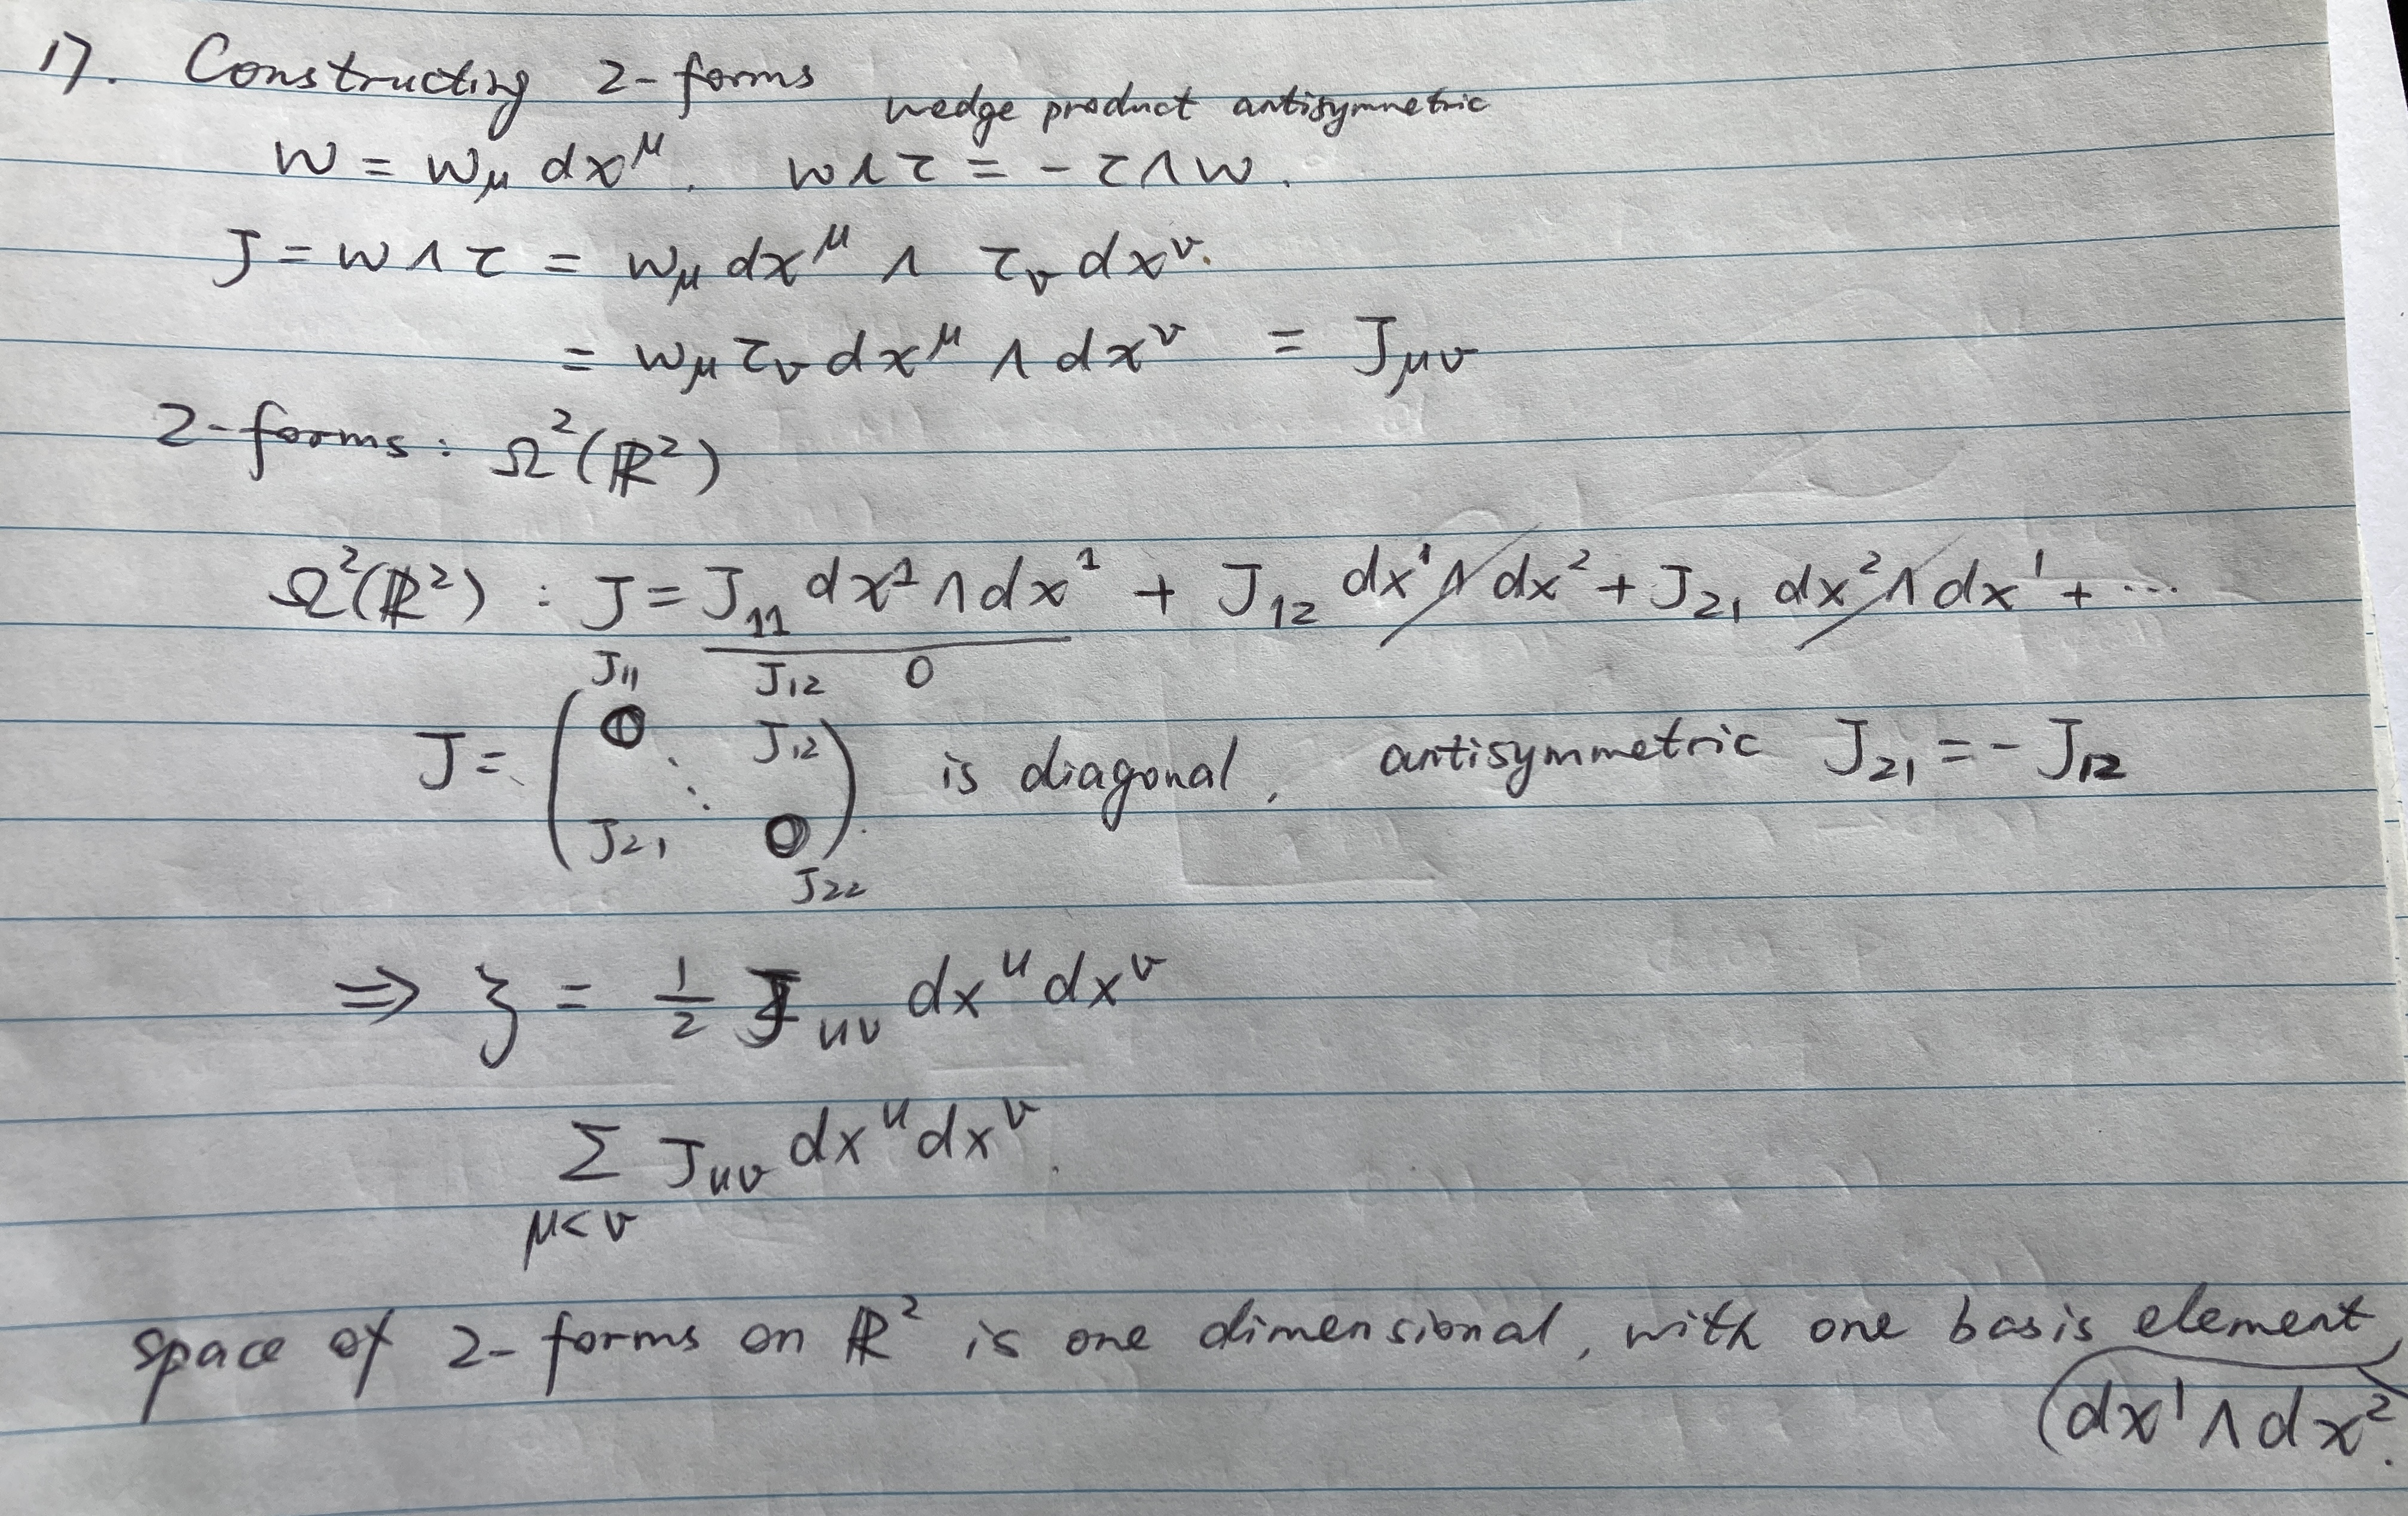 17. Constructing 2-forms
wedge product antisymmetric
w = wμ dx^μ. w∧τ = -τ∧w.
J = w∧τ = wμ dx^μ ∧ τν dx^ν.
= wμ τν dx^μ ∧ dx^ν = Jμν
2-forms: Ω²(ℝ²)
Ω²(ℝ²) : J = J₁₁ dx¹∧dx¹ + J₁₂ dx¹∧dx² + J₂₁ dx²∧dx¹ + ...
J₁₁ J₁₂ 0
J = ( 0 ⋱ J₁₂ J₂₁ 0 ) is diagonal, antisymmetric J₂₁ = -J₁₂
J₂₂
⇒ ξ = 1/2 Jμν dx^μ dx^ν
Σ Jμν dx^μ dx^ν.
μ<ν
space of 2-forms on ℝ² is one dimensional, with one basis element
dx¹∧dx².